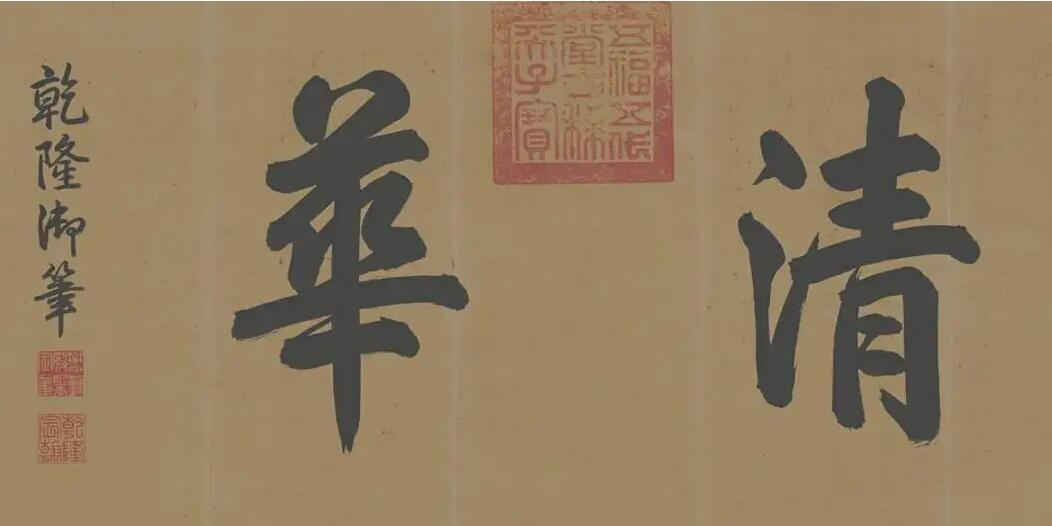 清華
五福五代
堂古稀
天子寶
乾隆御筆
乾隆
宸翰